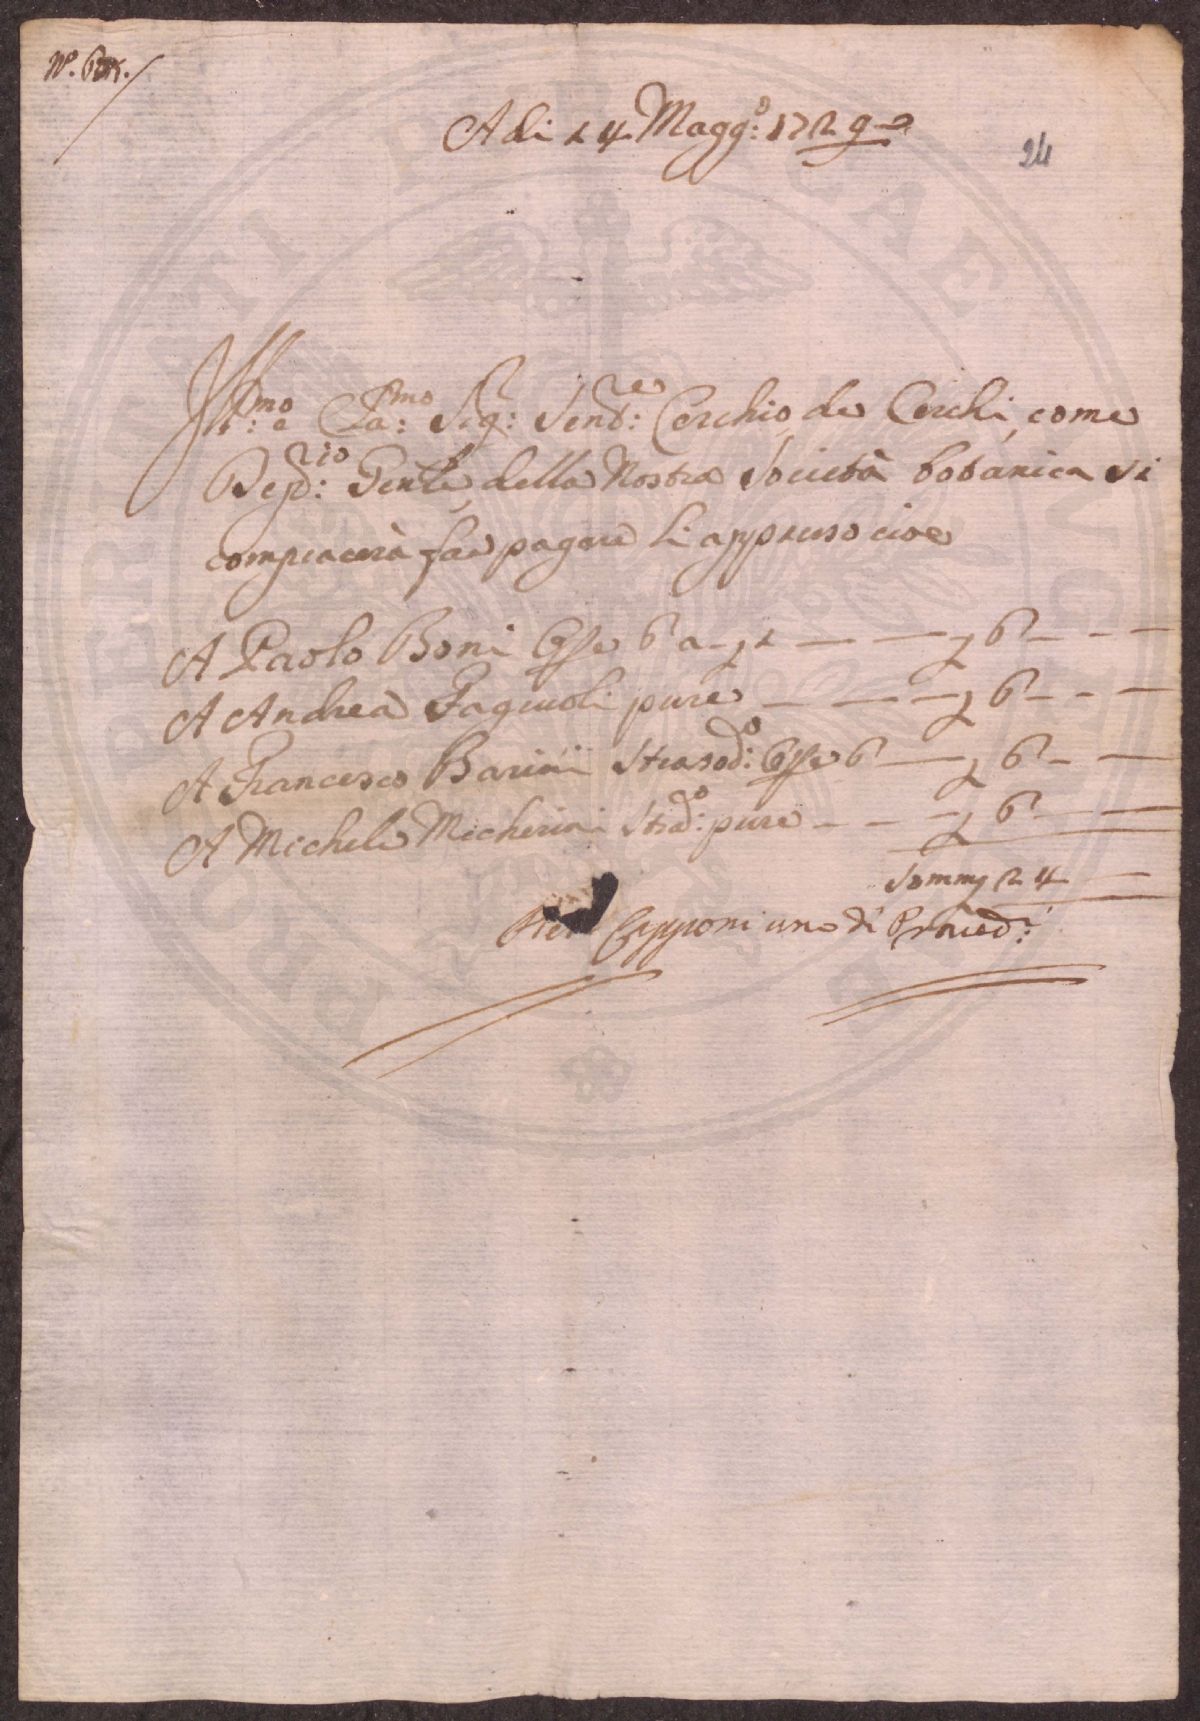 A di 14 Magg:o 1729
24
Ill:mo e Cla:mo Sig:r Senat:re Cerchio de Cerchi, come
Dep:rio Gen:le della Nostra Società botanica si
compiacerà far pagare li appreso cioe
A Paolo Boni Op:e 6 a 1 — — 6 — — —
A Andrea Fagiuoli pure — — — 6 — — —
A Francesco Barini Strasord:o Op:e 6 — 6 — —
A Michele Micherini Str:o pure — — — 6 — —
Somma 24 —
Pier Capponi uno di Proved:i